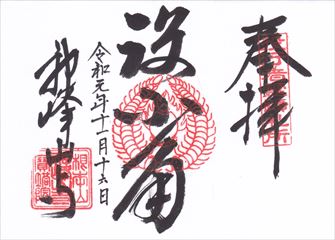 奉拝
役小角
令和元年十一月十六日
神峰山寺